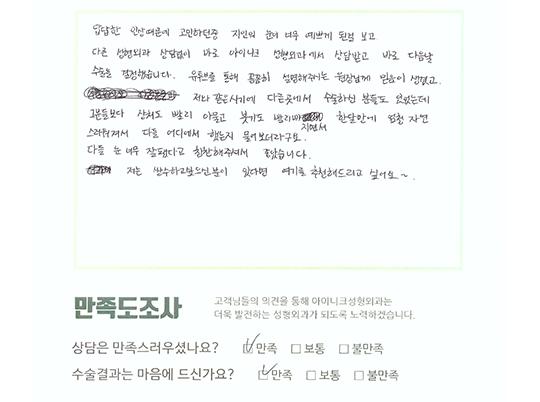 답답한 인상때문에 고민하던중 지인의 눈이 너무 예쁘게 된걸 보고
다른 성형외과 상담없이 바로 아이니크 성형외과에서 상담받고 바로 다음날
수술을 결정했습니다. 유튜브를 통해 꼼꼼히 설명해주시는 원장님께 믿음이 생겼고.
저랑 같은시기에 다른곳에서 수술하신 분들도 있었는데
그분들보다 상처도 빨리 아물고 붓기도 빨리 빠지면서 한달만에 엄청 자연
스러워져서 다들 어디에서 했는지 물어보더라구요.
다들 눈 너무 잘됐다고 칭찬해주셔서 좋았습니다.
저는 쌍수하고싶으신분이 있다면 여기를 추천해드리고 싶어요~.
만족도조사
고객님들의 의견을 통해 아이니크성형외과는
더욱 발전하는 성형외과가 되도록 노력하겠습니다.
상담은 만족스러우셨나요? ☑만족 □보통 □불만족
수술결과는 마음에 드신가요? ☑만족 □보통 □불만족